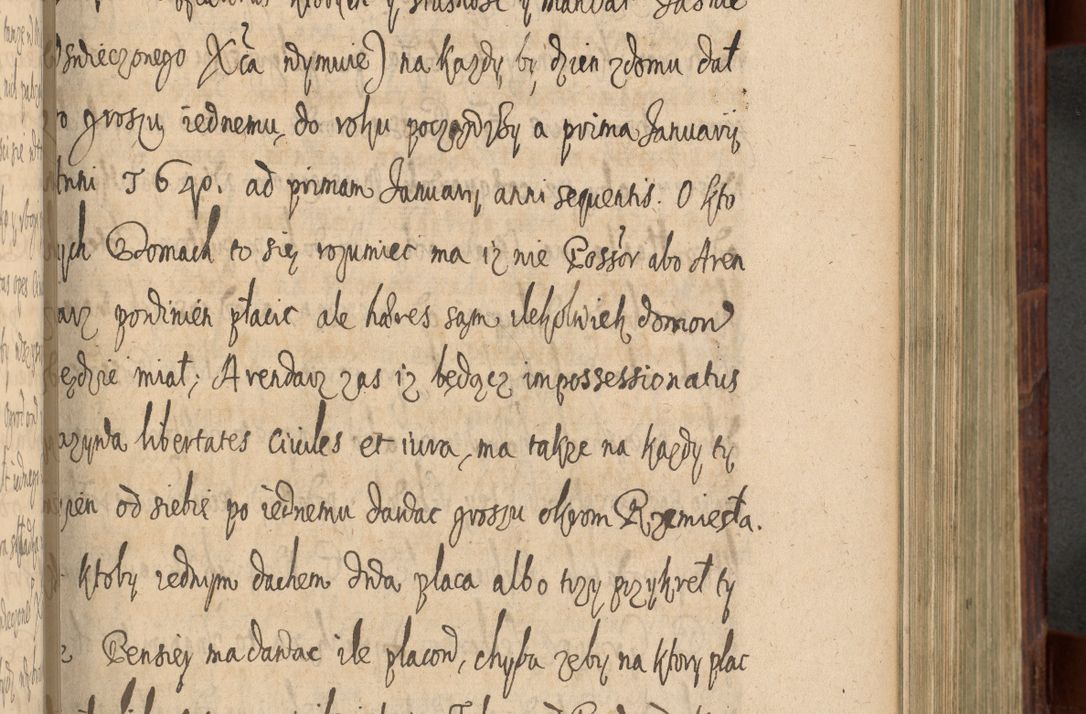 y słuszność y mandat Jaśnie
Oświeczonego Xcá wymuie) na każdy ty dzien z domu dał
po groszu iednemu, do roku począwszy a prima Januarij
Anni 1640. ad primam Januarij anni sequentis. O kto
rych Zdomach to się rozumiec ma iż nie Possór abo Aren
darz powinien płacic ale hæres sąm ilekolwiek domow
będzie miał; Arendarz zas iż będącz impossessionatus
zazywa libertates ciuiles et iura, ma także na każdy ty
dzien od siebie po iednemu dawac groszu okrom Rzemiesła.
ktoby iednym dachem dwa placa albo trzy przykrełty
Pensiey ma dawac ile placow, chyba żeby na ktory plac